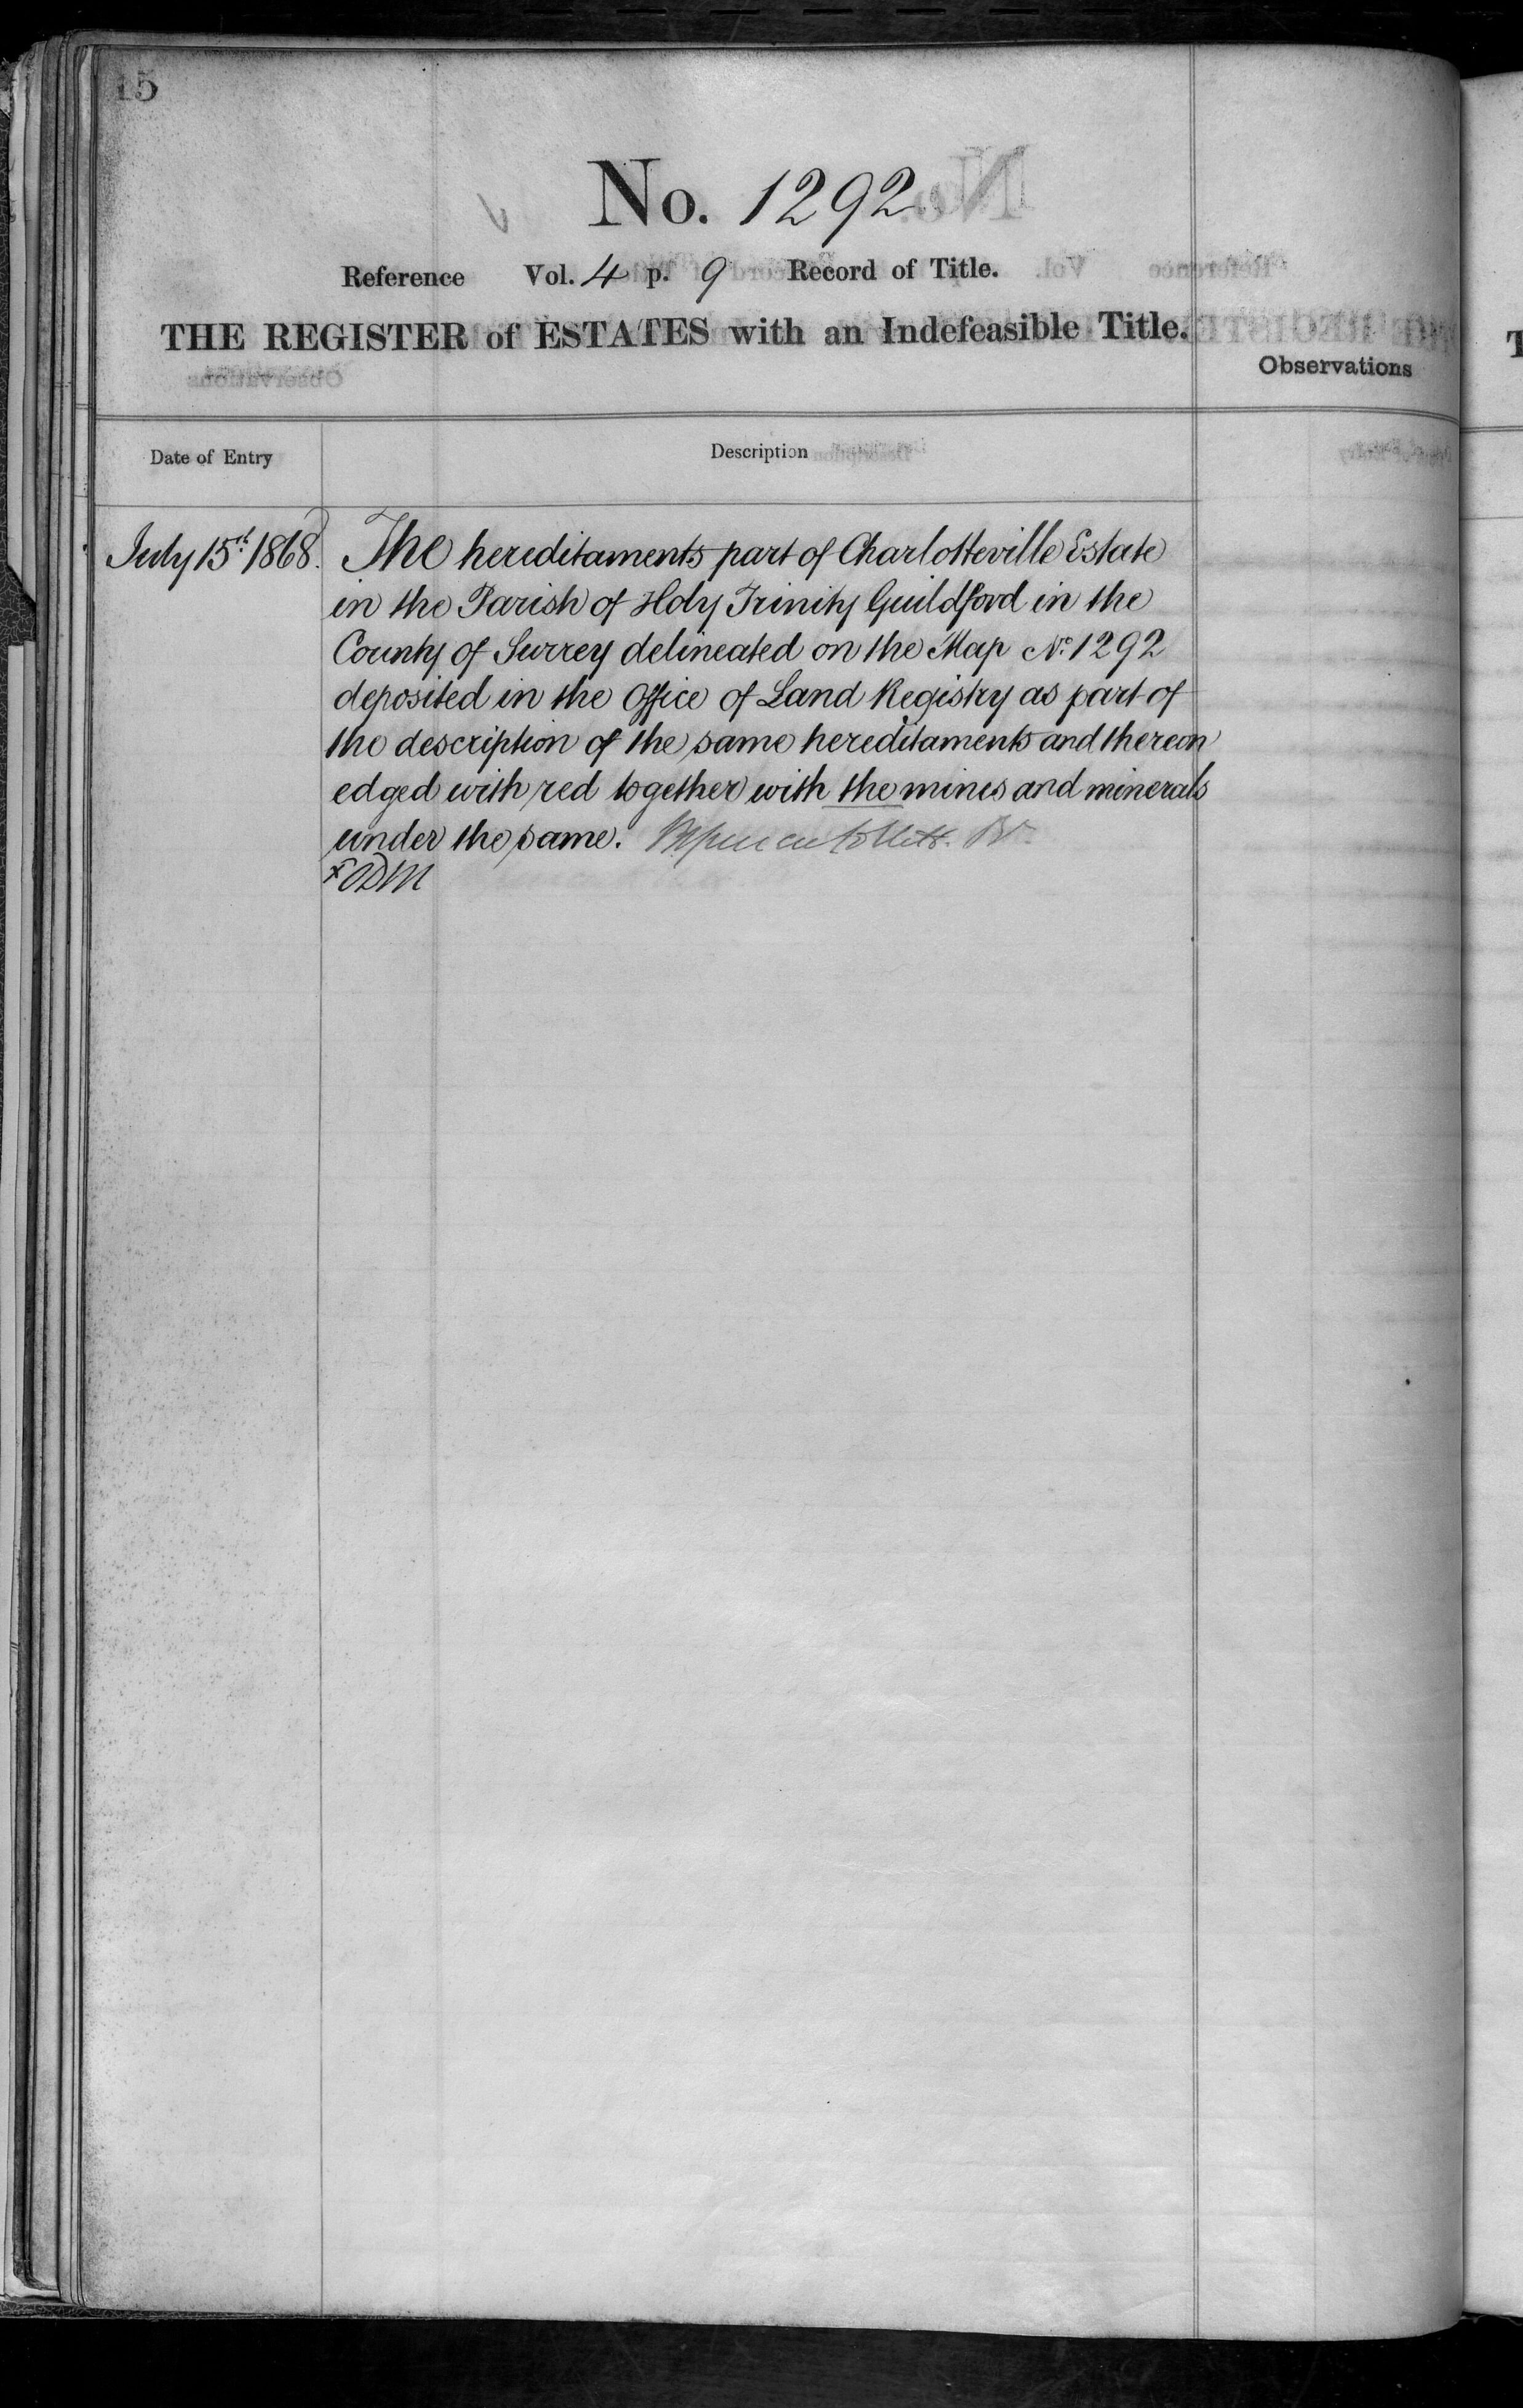 15
No. 1292
Reference Vol. 4 p. 9 Record of Title.
THE REGISTER of ESTATES with an Indefeasible Title.
Observations
Date of Entry
Description
July 15th 1868.
The hereditaments part of Charlotteville Estate
in the Parish of Holy Trinity Guildford in the
County of Surrey delineated on the Map No. 1292
deposited in the Office of Land Registry as part of
the description of the same hereditaments and thereon
edged with red together with the mines and minerals
under the same.